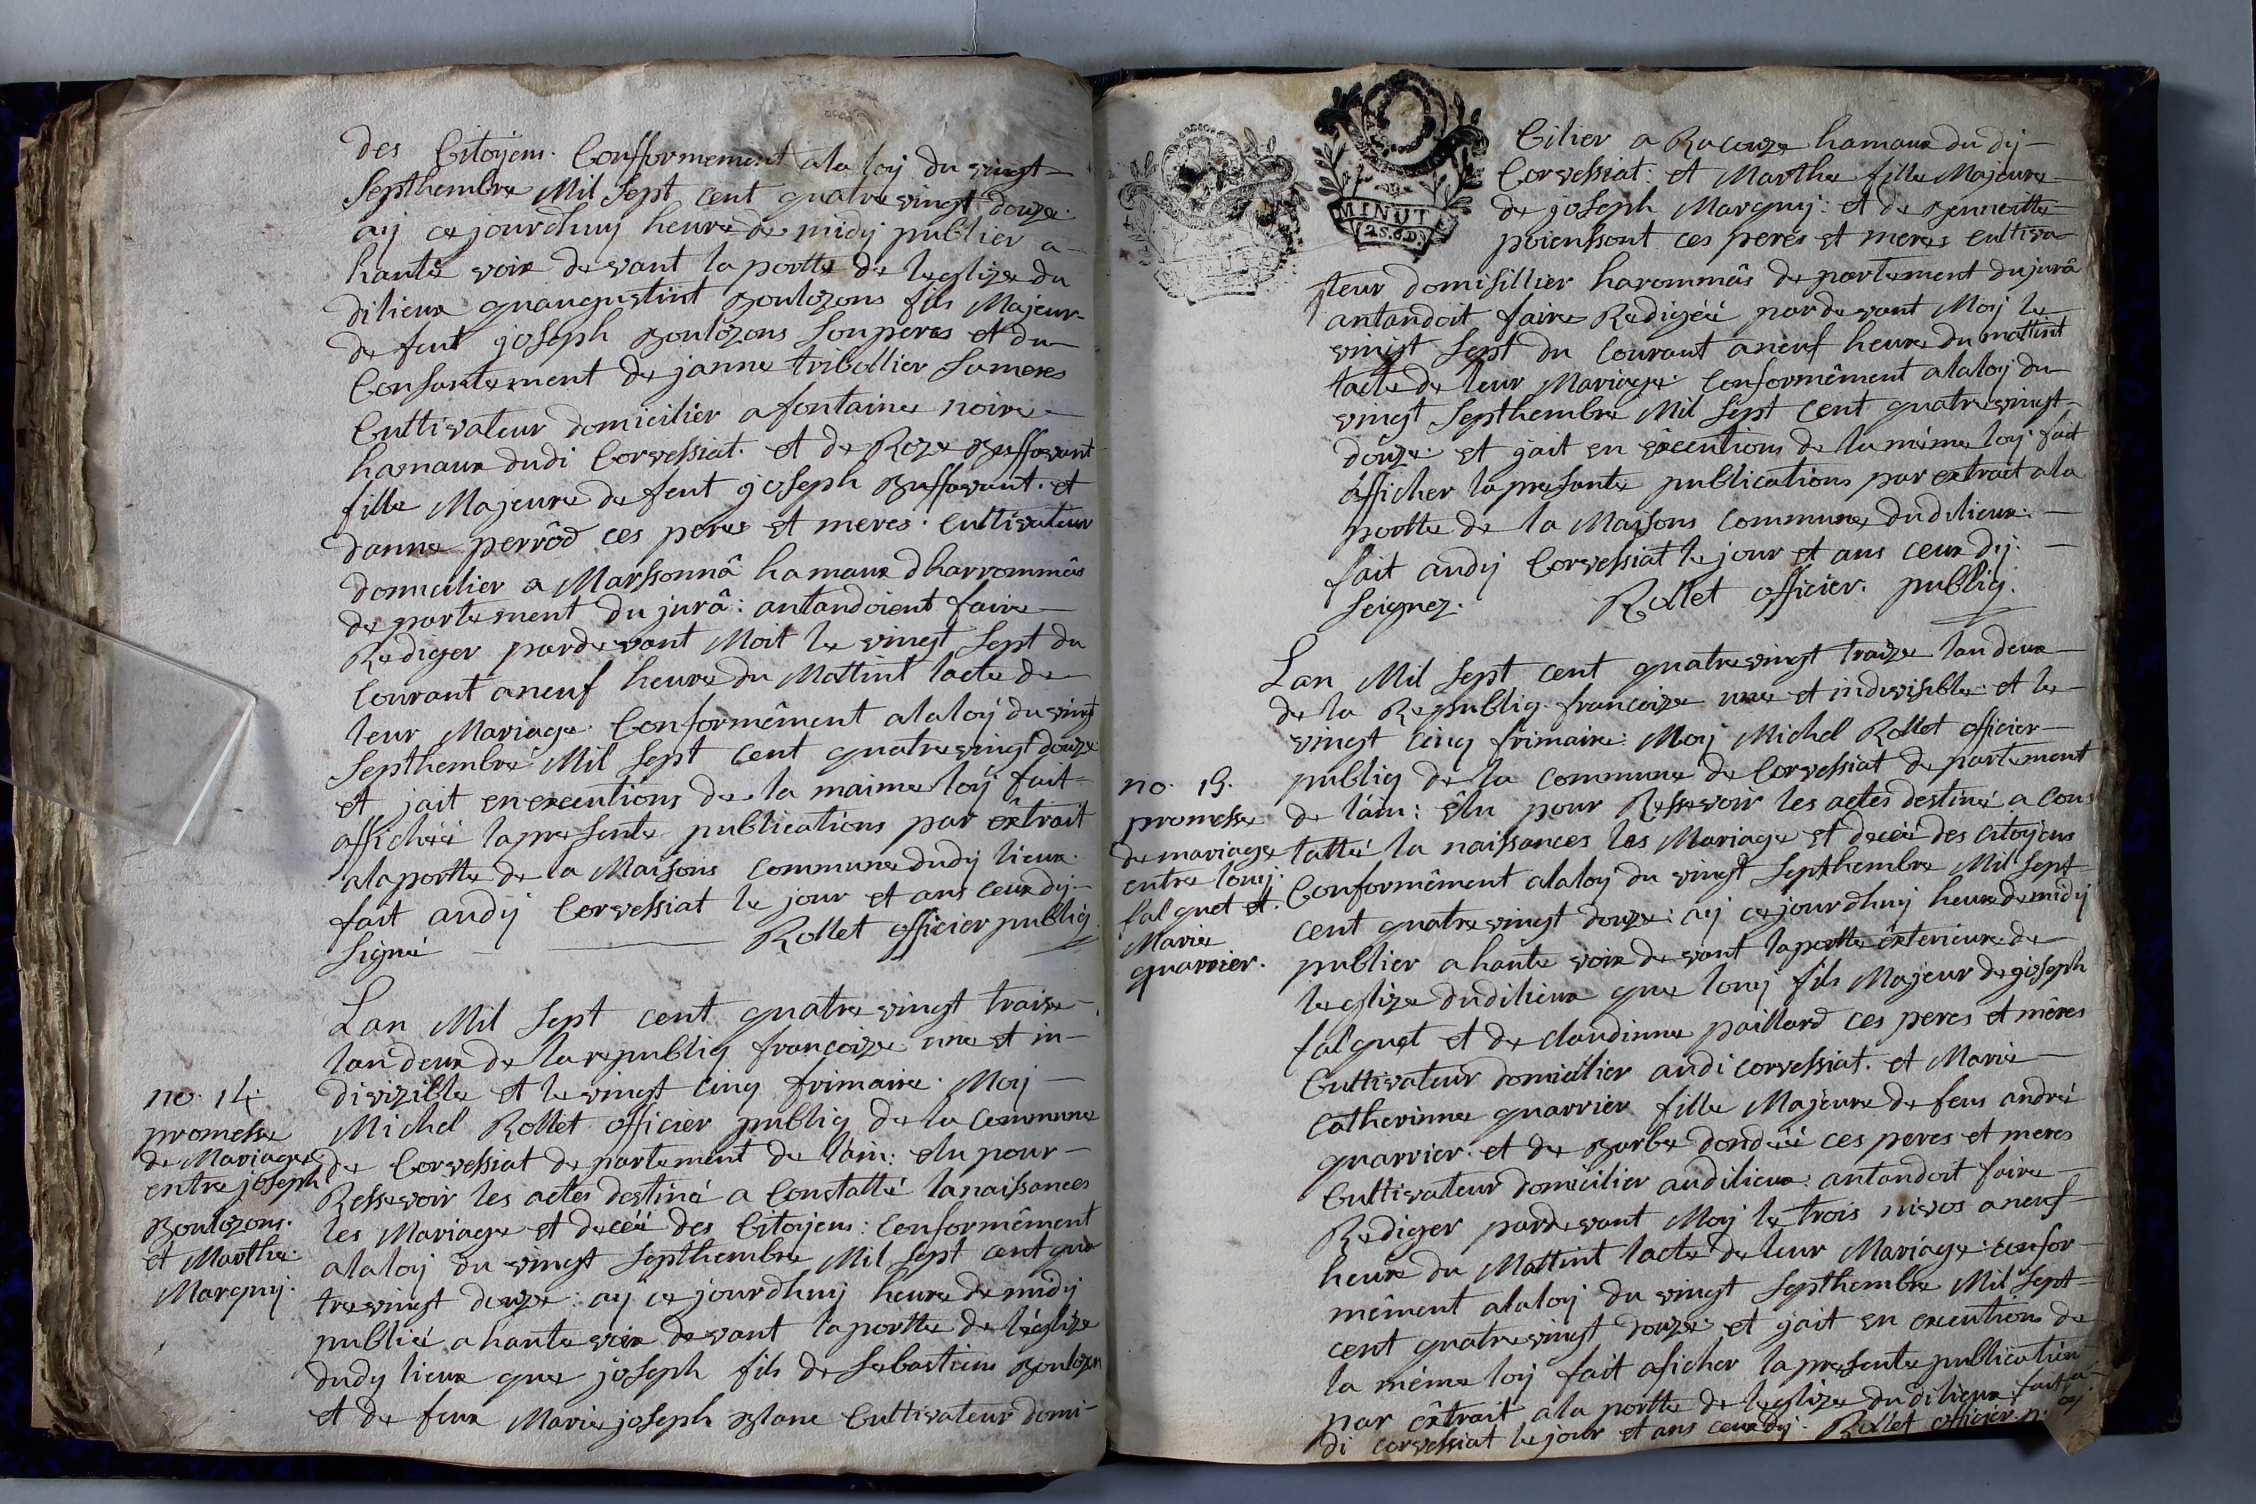 des Citoyens. Confformement ala loy du vingt
Septhembre Mil Sept cent quatre vingt douze.
aij ce jourdhuy heure de midy publier a
haute voix devant la portte de leglize du
dilieux quaugustint Boulozons fils Majeur
de feut joSeph Boulozons Son peres et du
Consantement de janne tribollier Sa meres
Culttivateur domicilier a fontaine noire
hamaux dudi Corvessiat. et de Roze Buffavant
fille Majeure de feut joSeph Buffavant. et
danne perrôd ces peres et meres. Culttivateur
domicilier a Marssonnâ hamaux dharrommâs
departement du jurâ: antandoient faire
Rediger pardevant Moit le vingt Sept du
Courant a neuf heure du Mattint lacte de
leur Mariage. Conformêment alaloÿ du vingt
Septhembre Mil Sept cent quatre vingt douze
et jait en execution de la maime loÿ fait
affichéé la preSente publications par extrait
alaportte de la Maisons commune dudy lieux.
fait audij Corvessiat le jour et ans ceux dij
Signé Rollet officier publiq.
Lan Mil Sept cent quatre vingt traise
lan deux de la republiq françoize une et in-
no. 14. divizible et le vingt cinq frimaire. Moy
promesse Michel Rollet officier publiq de la Commune
de Mariage de Corvessiat departement de lain: elu pour
entre joSeph Ressevoir les actes destiné a Constatté la naissances
Boulozons. les Mariage et decéé des Citoyens: conformêment
et Marthe alaloy du vingt Septhembre Mil Sept cent qua
Marquij. tre vingt douze: aij ce jourdhuy heure de midy
publié a haute voix devant la portte de léglize
dudy lieux que joSeph fils de Sebastiens Boulozon
et de feux Marie joSeph Blanc Culttivateur domi-
Cilier a Racouze hamaux du dij
Corvessiat: et Marthe fille Majeure
de joSeph Marquij: et de Benneitte
poienssont ces peres et meres cultiva
MINUT
2S.6D.
teur domisillier harommâs departement dujurâ
antandoit faire Redigéé pardevant Moij le
vingt Sept du Courant a neuf heure du mattint
lacte de leur Mariage. Conformêment alaloy du
vingt Septhembre Mil Sept cent quatre vingt
douze. et jait en êxecutions de la même loy. fait
afficher la presante publications par extrait ala
portte de la Maisons commune dudilieux.
fait audij Corvessiat le jour et ans ceux dij.
Seignez. Rollet officier. publiq.
Lan Mil Sept cent quatre vingt traize lan deux
de la Republiq. françoize une et indivisible. et le
vingt cinq frimaire: Moy Michel Rollet officier
no. 15. publiq de la commune de Corvessiat departement
promesse de l'ain: êlu pour Ressevoir les actes destiné a cons
de mariage tatté la naissances les Mariage et decéé des Citoyens
entre louij. Conformêment alaloy du vingt Septhembre Mil Sept
falquet et. cent quatre vingt douze: aij ce jourdhuij heure de midy
Marie publier a haute voix devant la portte êxterieure de
quarrier. leglize dudilieux que louij fils Majeur de joSeph
falquet et de claudinne paillard ces peres et mêres
Culttivateur domicilier audi corvessiat. et Marie
Catherinne quarrier fille Majeure de feus andré
quarrier. et de Barbe dondéé ces peres et meres
Culttivateur domicilier audilieux. antandoit faire
Rediger pardevant Moy le trois nivos a neuf
heure du Mattint lacte de leur Mariage. confor
mêment alaloy du vingt Septhembre Mil Sept
cent quatre vingt douze. et jait en executions de
la même loij fait aficher la presente publication
par êxtrait ala portte de leglize dudilieux. fait a
di corvessiat le jour et ans ceux dij. Rollet officier. p.